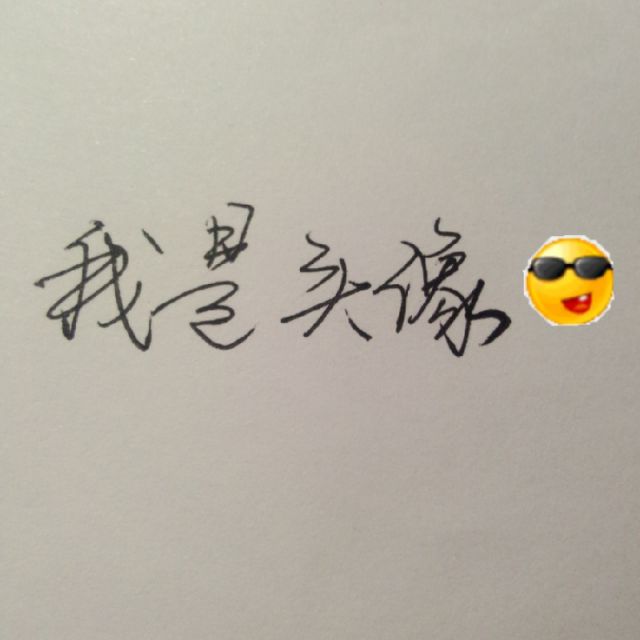 我是头像